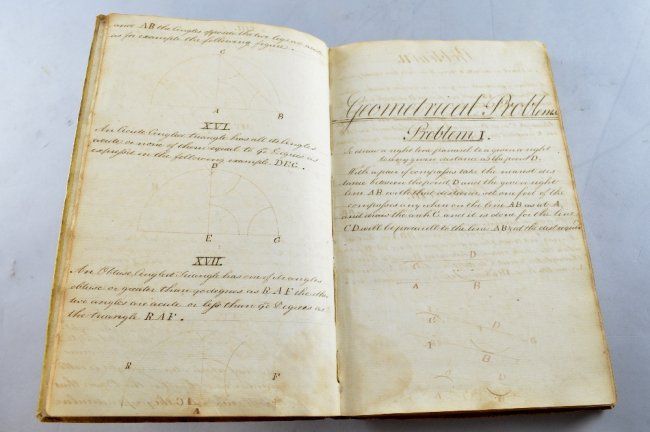 and AB the Angles opposite the two legs are acute
as for example the following figure.
C
A
B
XVI.
An Acute Angled triangle has all its Angles
acute or none of them equal to 90 Degrees as
exprest in the following example DEG.
D
E
G
XVII.
An Obtuse Angled Triangle has one of its angles
obtuse or greater than 90 degrees as RAF the other
two angles are acute or less than 90 Degrees as
the triangle RAF.
R
F
A
Geometrical Problems
Problem I.
To draw a right line parallel to a given right
line any given distance as the point D.
With a pair of compasses take the nearest dis
tance between the point D and the given right
line AB with that distance, set one foot of the
compasses any where on the line AB as at A
and draw the arch C and it is done for the line
CD will be parallel to the line AB at the distance
C D
A B
C D
A
B